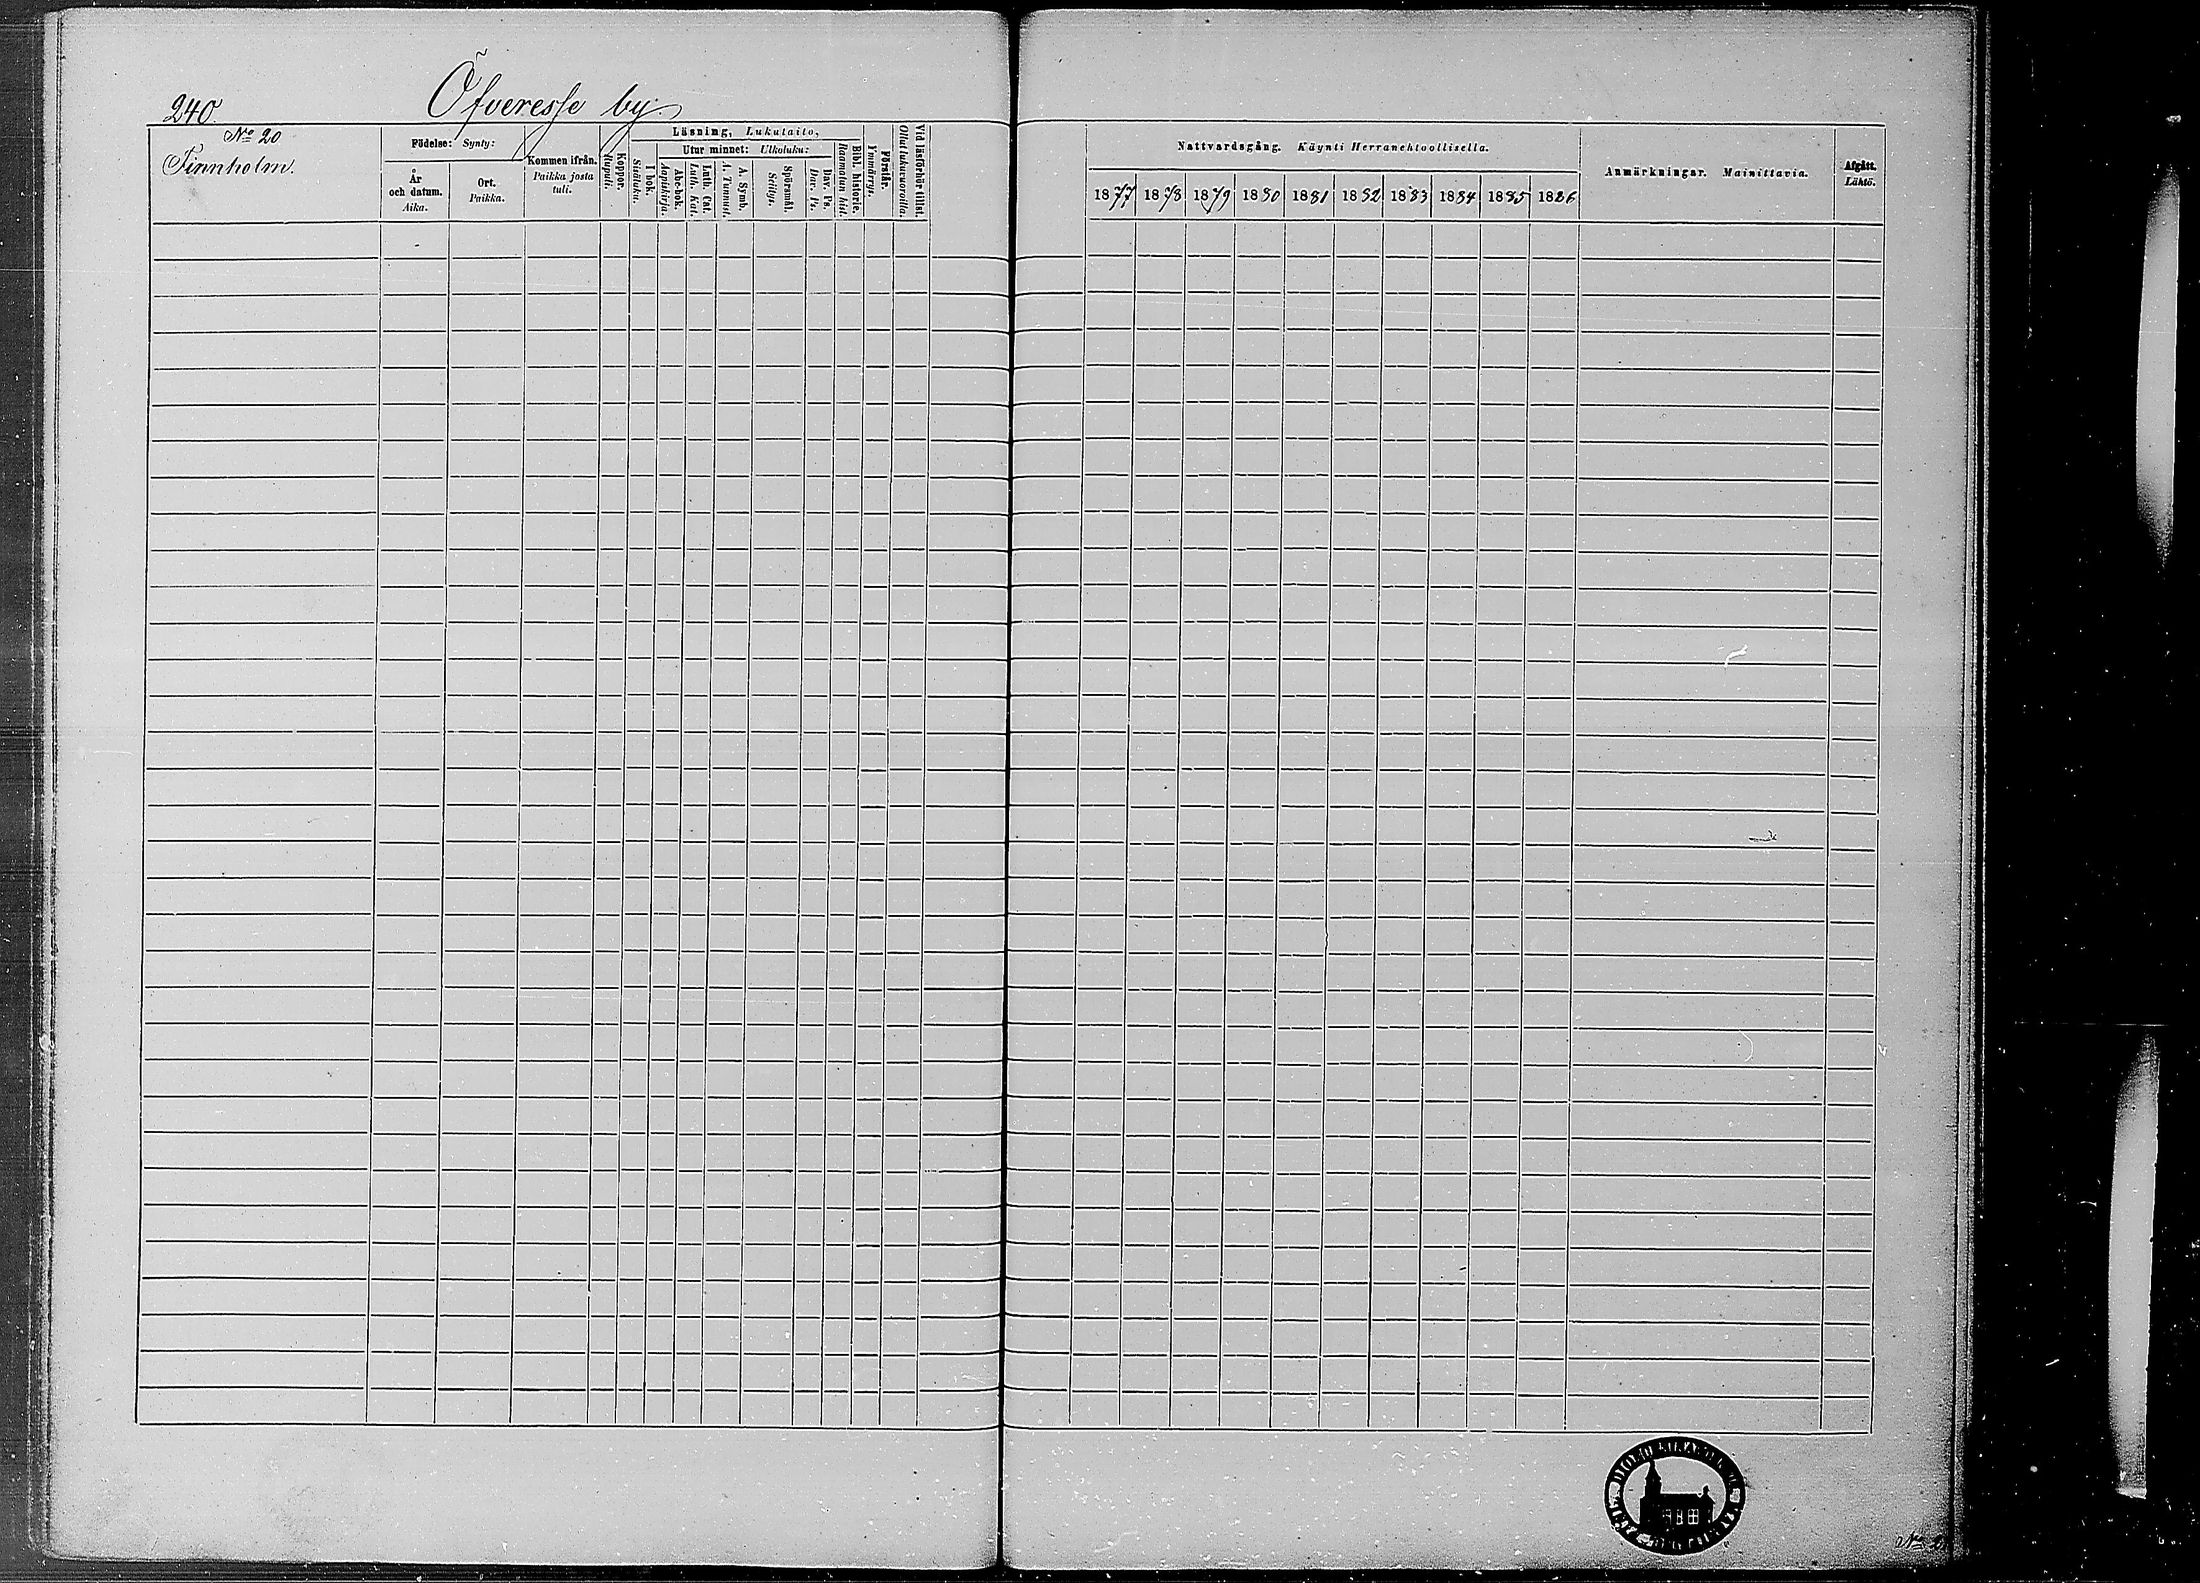 240.
Öfveresse by.
No 20
Finnholm.
Födelse: Synty:
År och datum. Aika.
Ort. Paikka.
Kommen ifrån. Paikka josta tuli.
Koppor. Rupuli.
Läsning, Lukutaito,
I bok. Sisäluku.
Utur minnet: Ulkoluku:
Abc-bok. Aapiskirja.
Luth. Cat. Luth. Kat.
A. Symb. A. Tunnust.
Spörsmål. Selitys.
Dav. Ps. Dav. Ps.
Bibl. historie. Raamatun hist.
Förstår. Ymmärrys.
Vid läsförhör tillst. Ollut lukuvuoroilla.
Nattvardsgång. Käynti Herranehtoollisella.
1877 1878 1879 1880 1881 1882 1883 1884 1885 1886
Anmärkningar. Mainittavia.
Afgått. Lähtö.